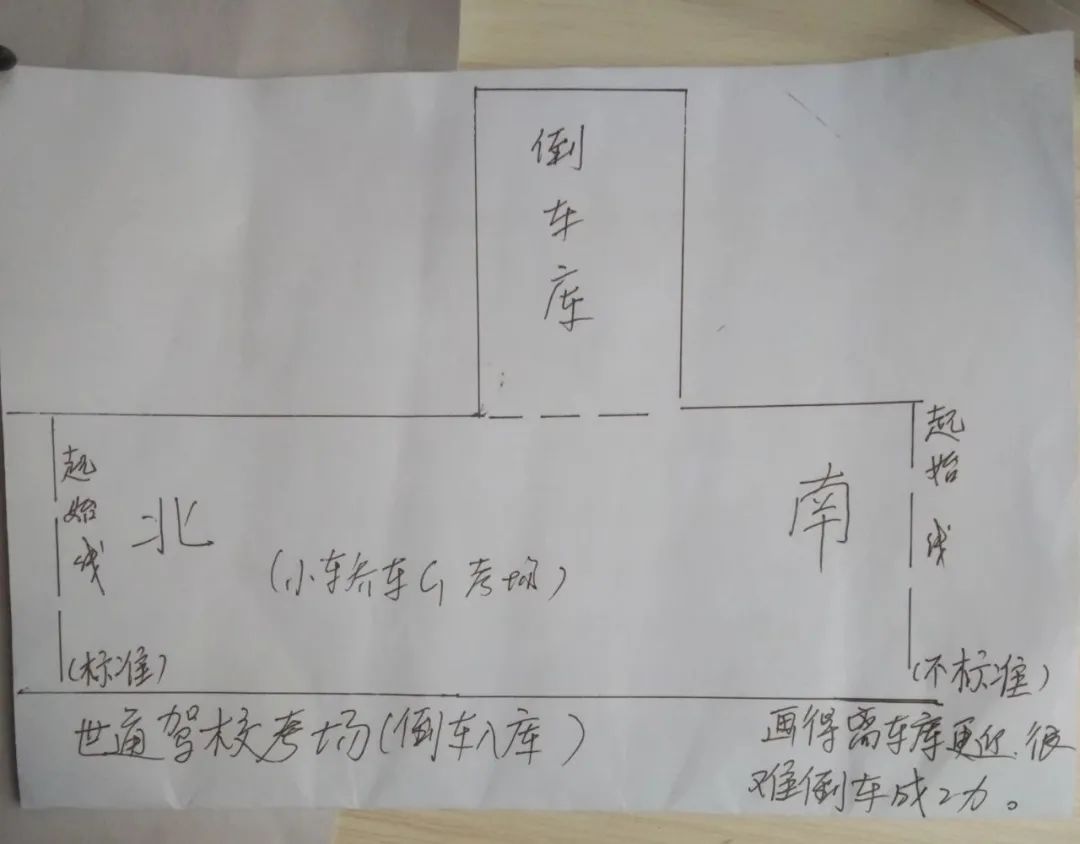 倒车库
起始线
北
南
起始线
(小轿车C1考场)
(标准)
(不标准)
世通驾校考场(倒车入库)
画得离车库更近.很
难倒车成功。